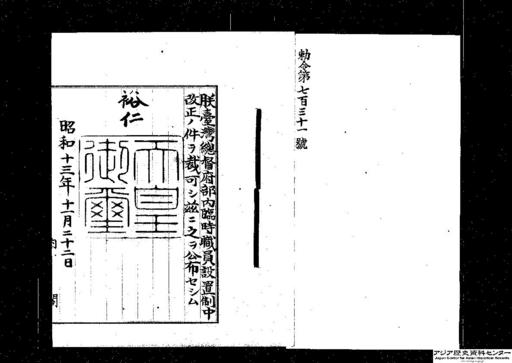 勅令第七百三十一號
朕臺灣總督府部內臨時職員設置制中
改正ノ件ヲ裁可シ茲ニ之ヲ公布セシム
裕仁
天皇
御璽
昭和十三年十一月二十二日
內閣
アジア歴史資料センター
Japan Center for Asian Historical Records